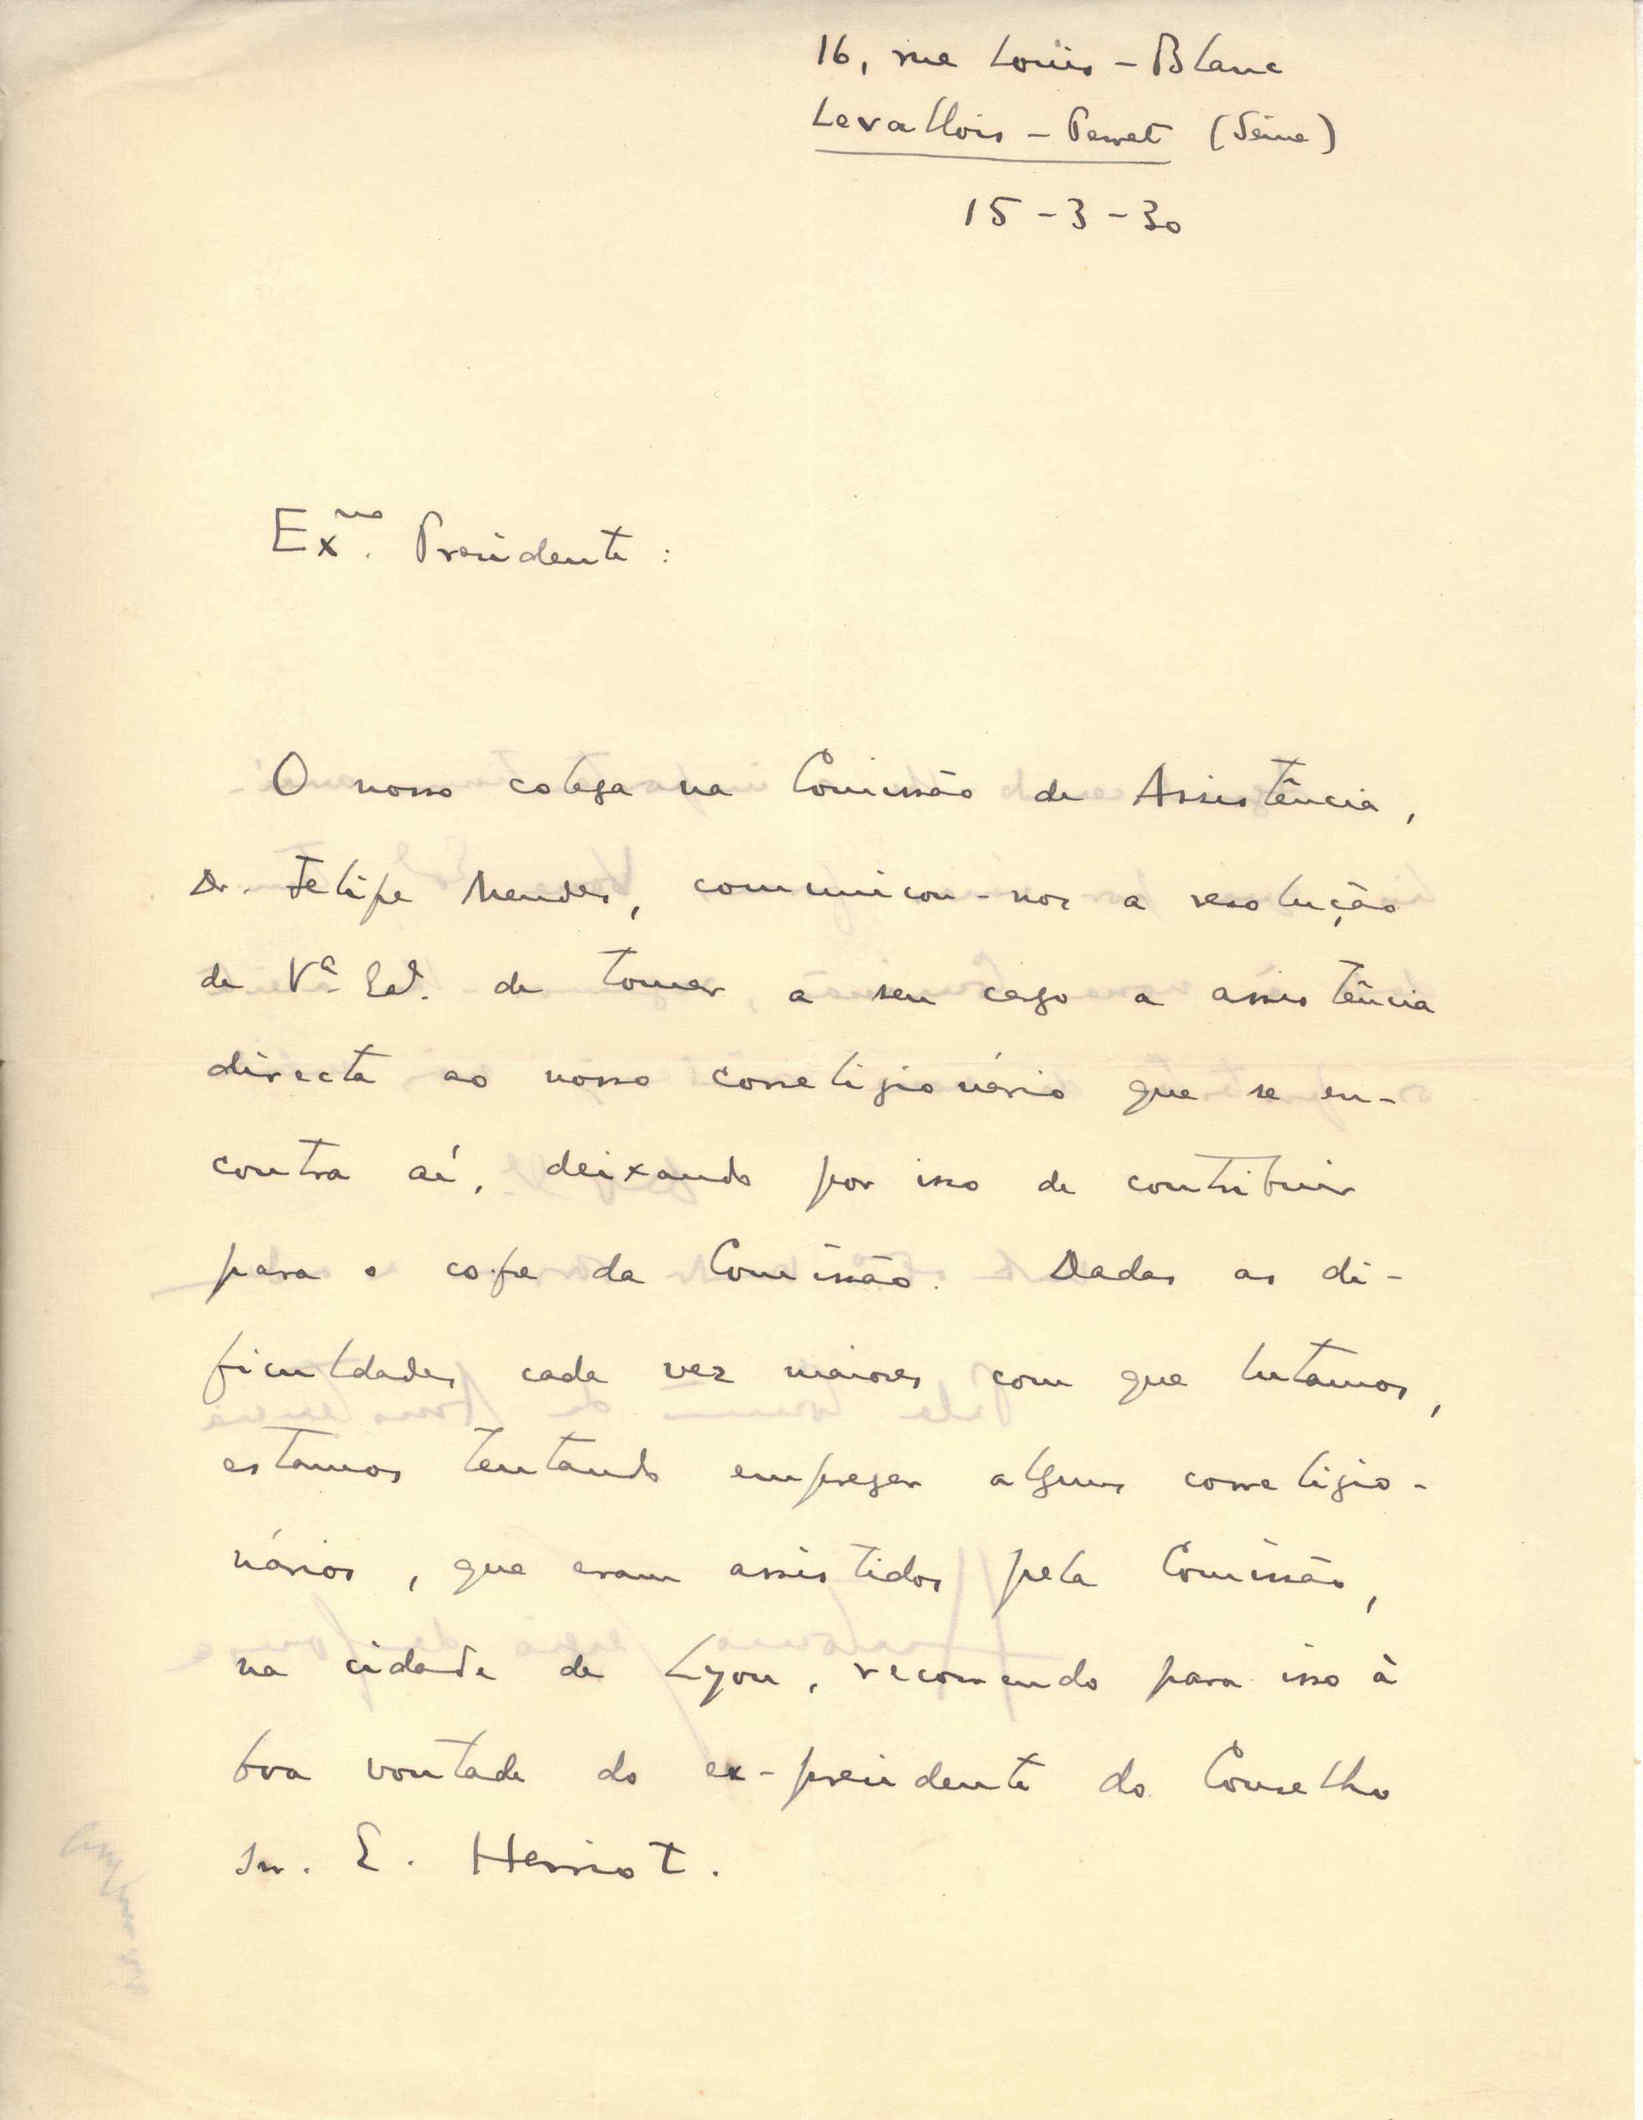 16, rue Louis - Blanc
Levallois - Perret (Seine)
15 - 3 - 30
Exmo. Presidente :
O nosso colega na Comissão de Assistência,
Dr. Felipe Mendes, comunicou-nos a resolução
de Vª Exª. de tomar a seu cargo a assistência
directa ao nosso correligionário que se en-
contra aí, deixando por isso de contribuir
para o cofre da Comissão. Dadas as di-
ficuldades cada vez maiores com que lutamos,
estamos tentando empregar alguns correligio-
nários, que eram assistidos pela Comissão,
na cidade de Lyon, recorrendo para isso à
boa vontade do ex-presidente do Conselho
Sr. E. Herriot.